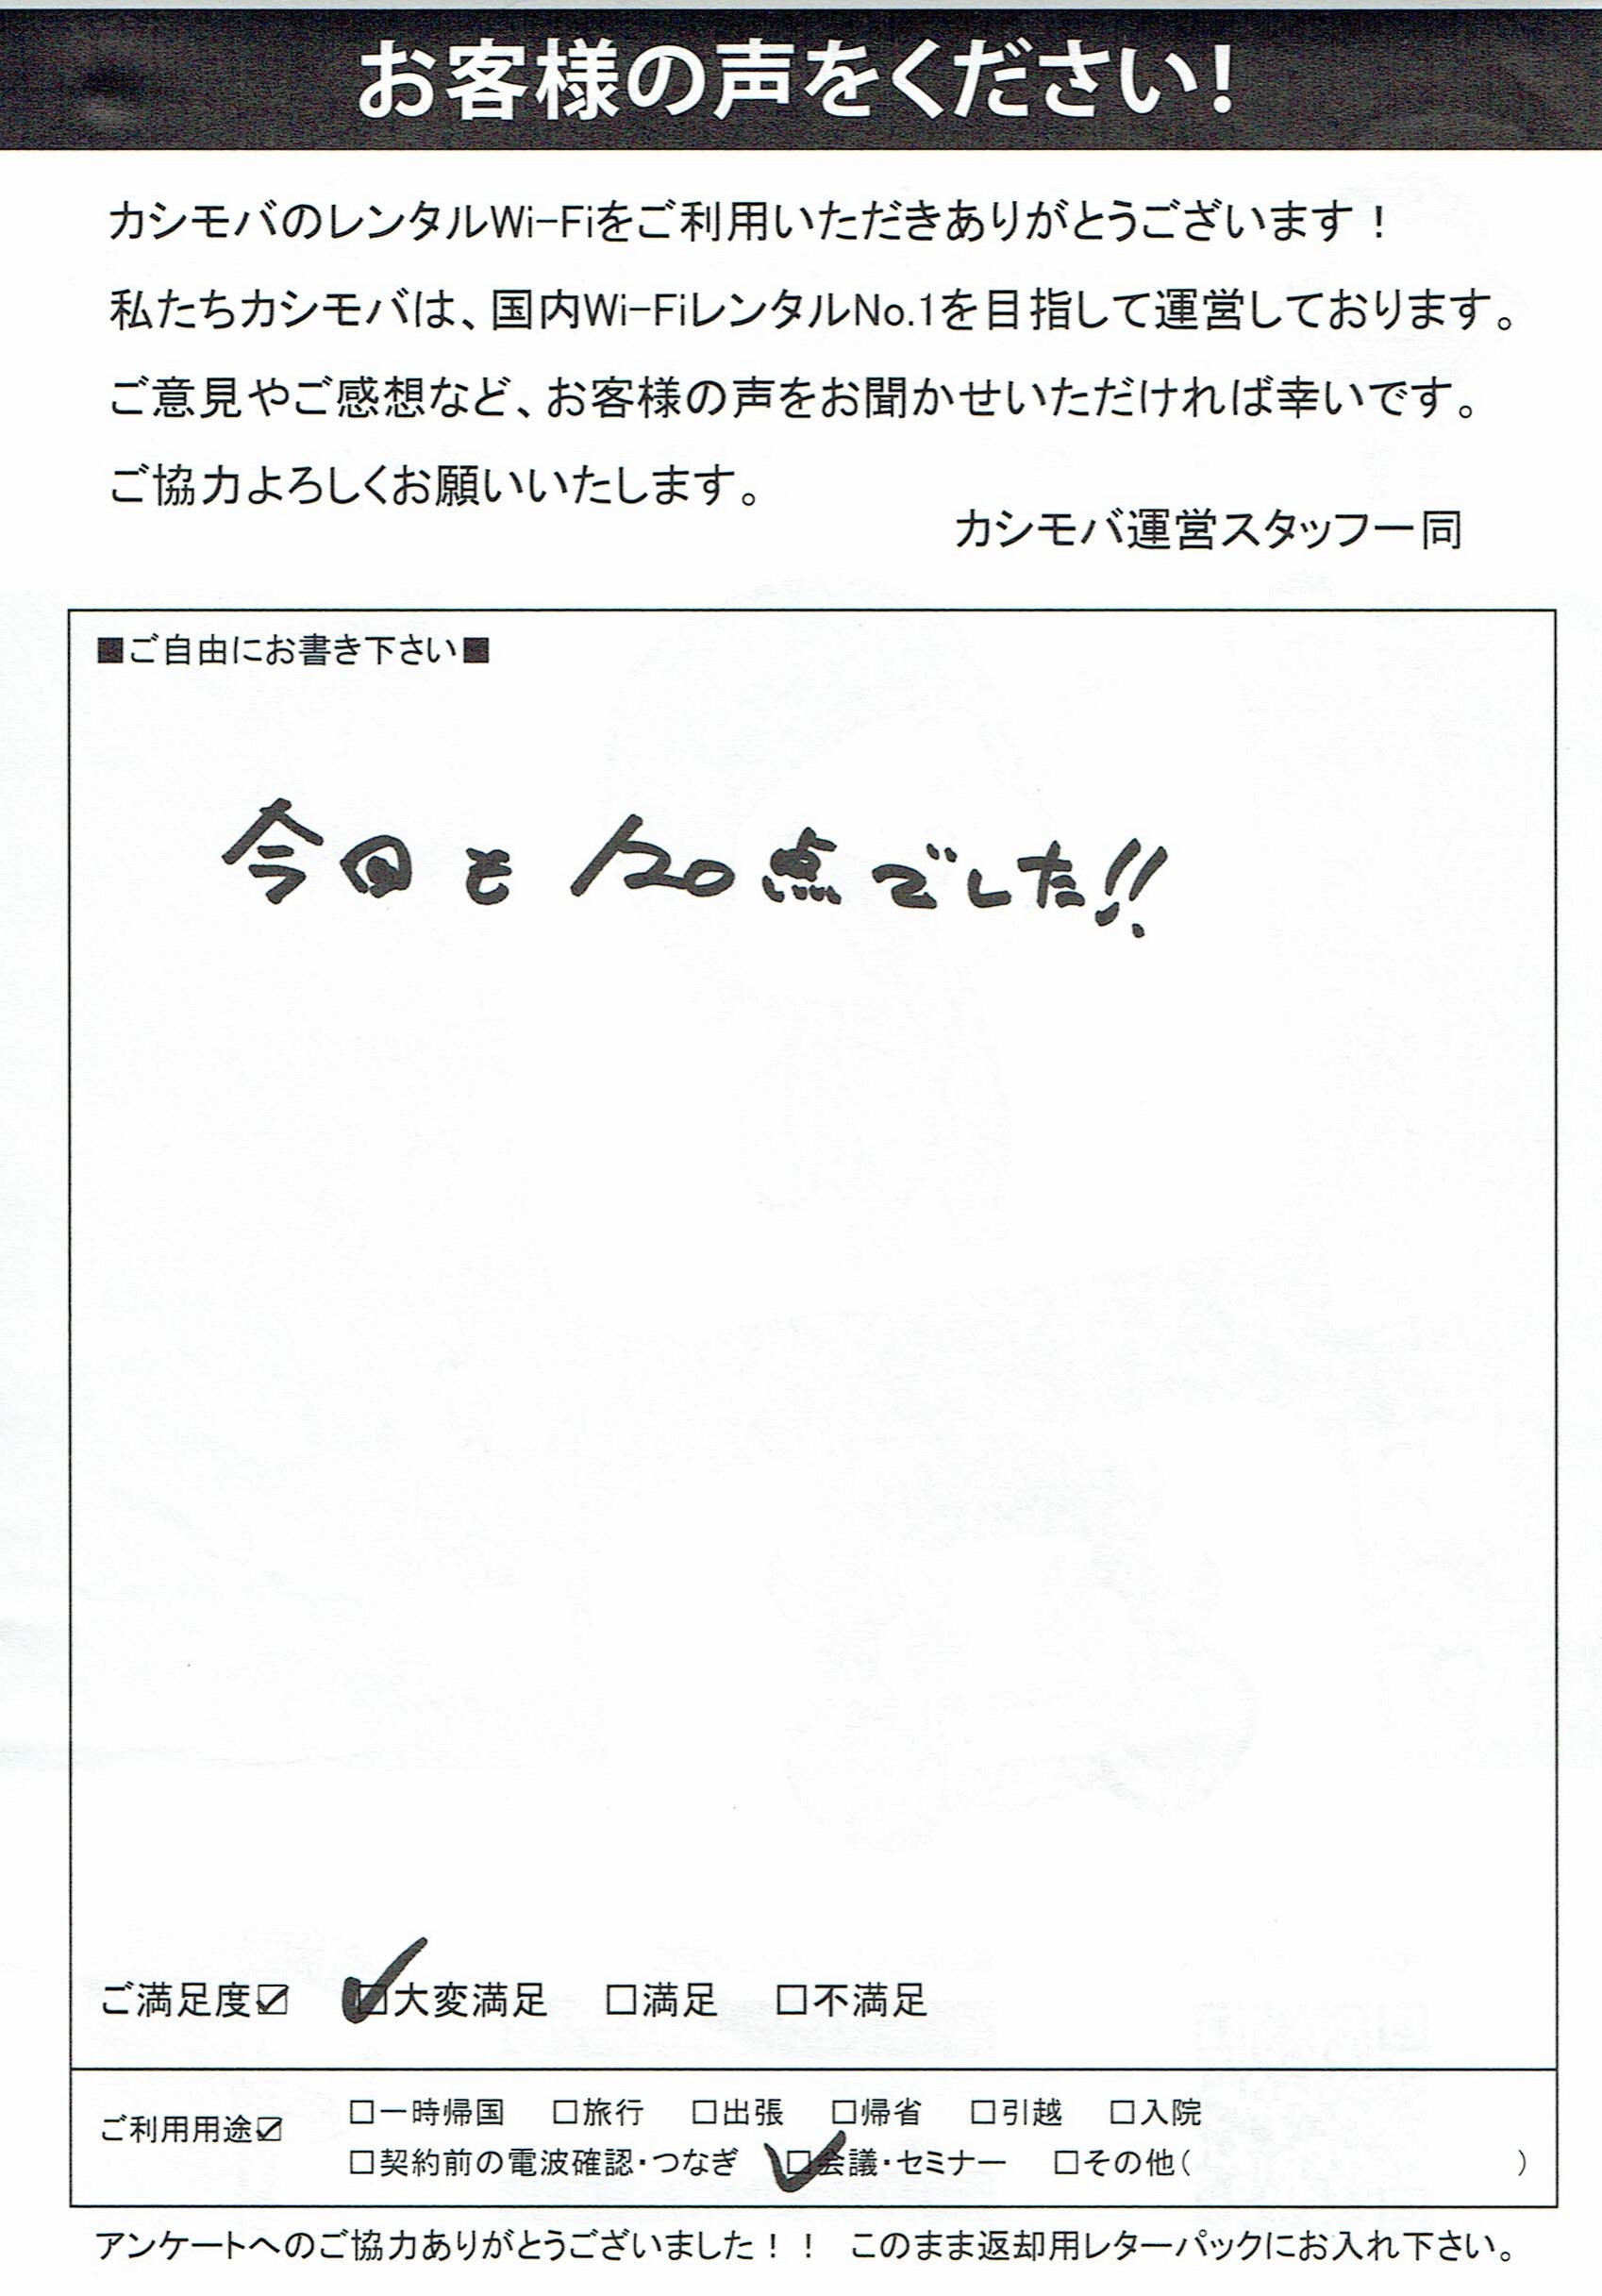 お客様の声をください！
カシモバのレンタルWi-Fiをご利用いただきありがとうございます！
私たちカシモバは、国内Wi-FiレンタルNo.1を目指して運営しております。
ご意見やご感想など、お客様の声をお聞かせいただければ幸いです。
ご協力よろしくお願いいたします。
カシモバ運営スタッフ一同
■ご自由にお書き下さい■
今回も120点でした!!
ご満足度☑ ☑大変満足 □満足 □不満足
ご利用用途☑ □一時帰国 □旅行 □出張 □帰省 □引越 □入院
□契約前の電波確認・つなぎ ☑会議・セミナー □その他( )
アンケートへのご協力ありがとうございました！！ このまま返却用レターパックにお入れ下さい。